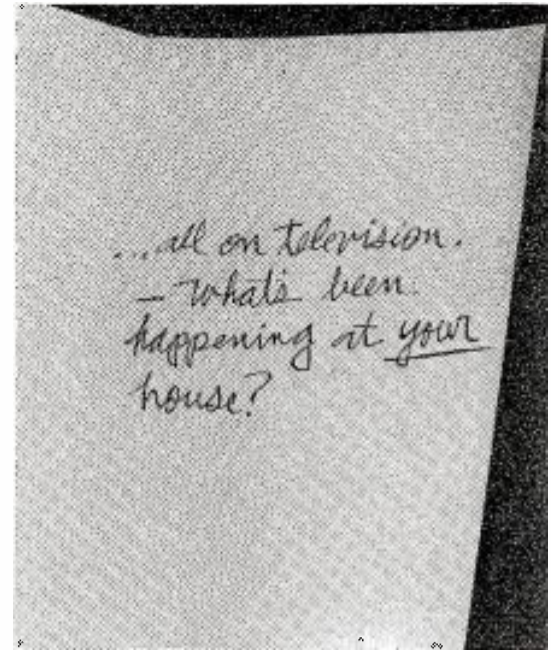 ...all on television.
— What's been
happening at your
house?